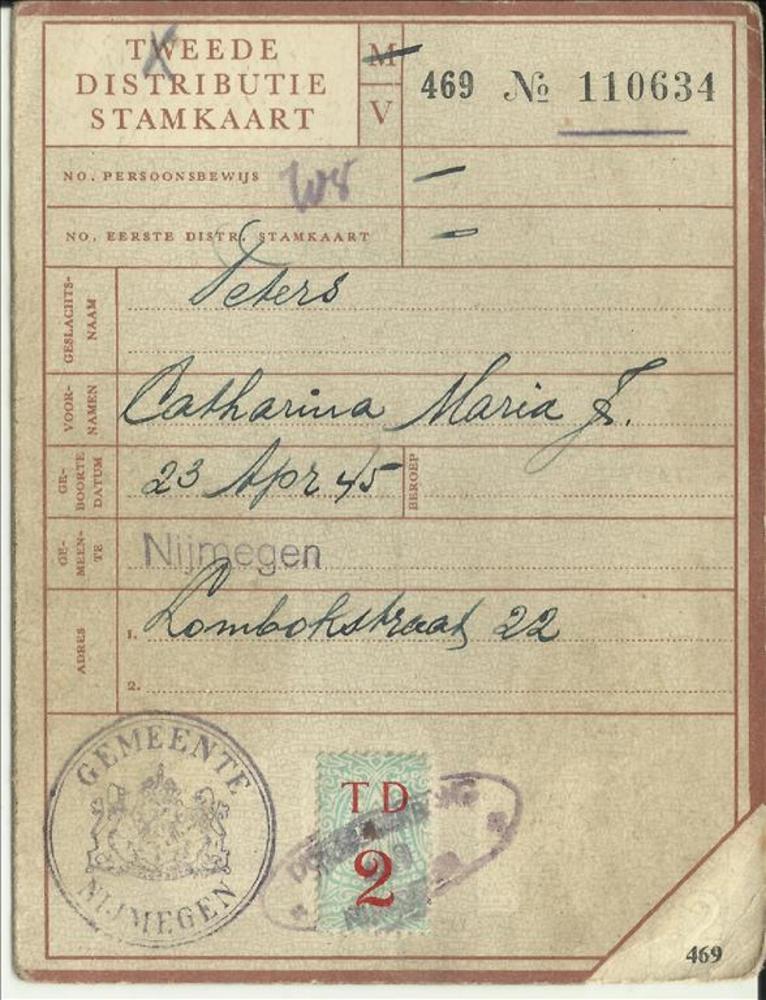 TWEEDE
DISTRIBUTIE
STAMKAART
M
V
469 № 110634
NO. PERSOONSBEWIJS
NO. EERSTE DISTR. STAMKAART
GESLACHTS-
NAAM
Peters
VOOR-
NAMEN
Catharina Maria F.
GE-
BOORTE
DATUM
23 Apr 45
BEROEP
GE-
MEEN-
TE
Nijmegen
ADRES
1. Lombokstraat 22
2.
GEMEENTE
NIJMEGEN
TD
2
469